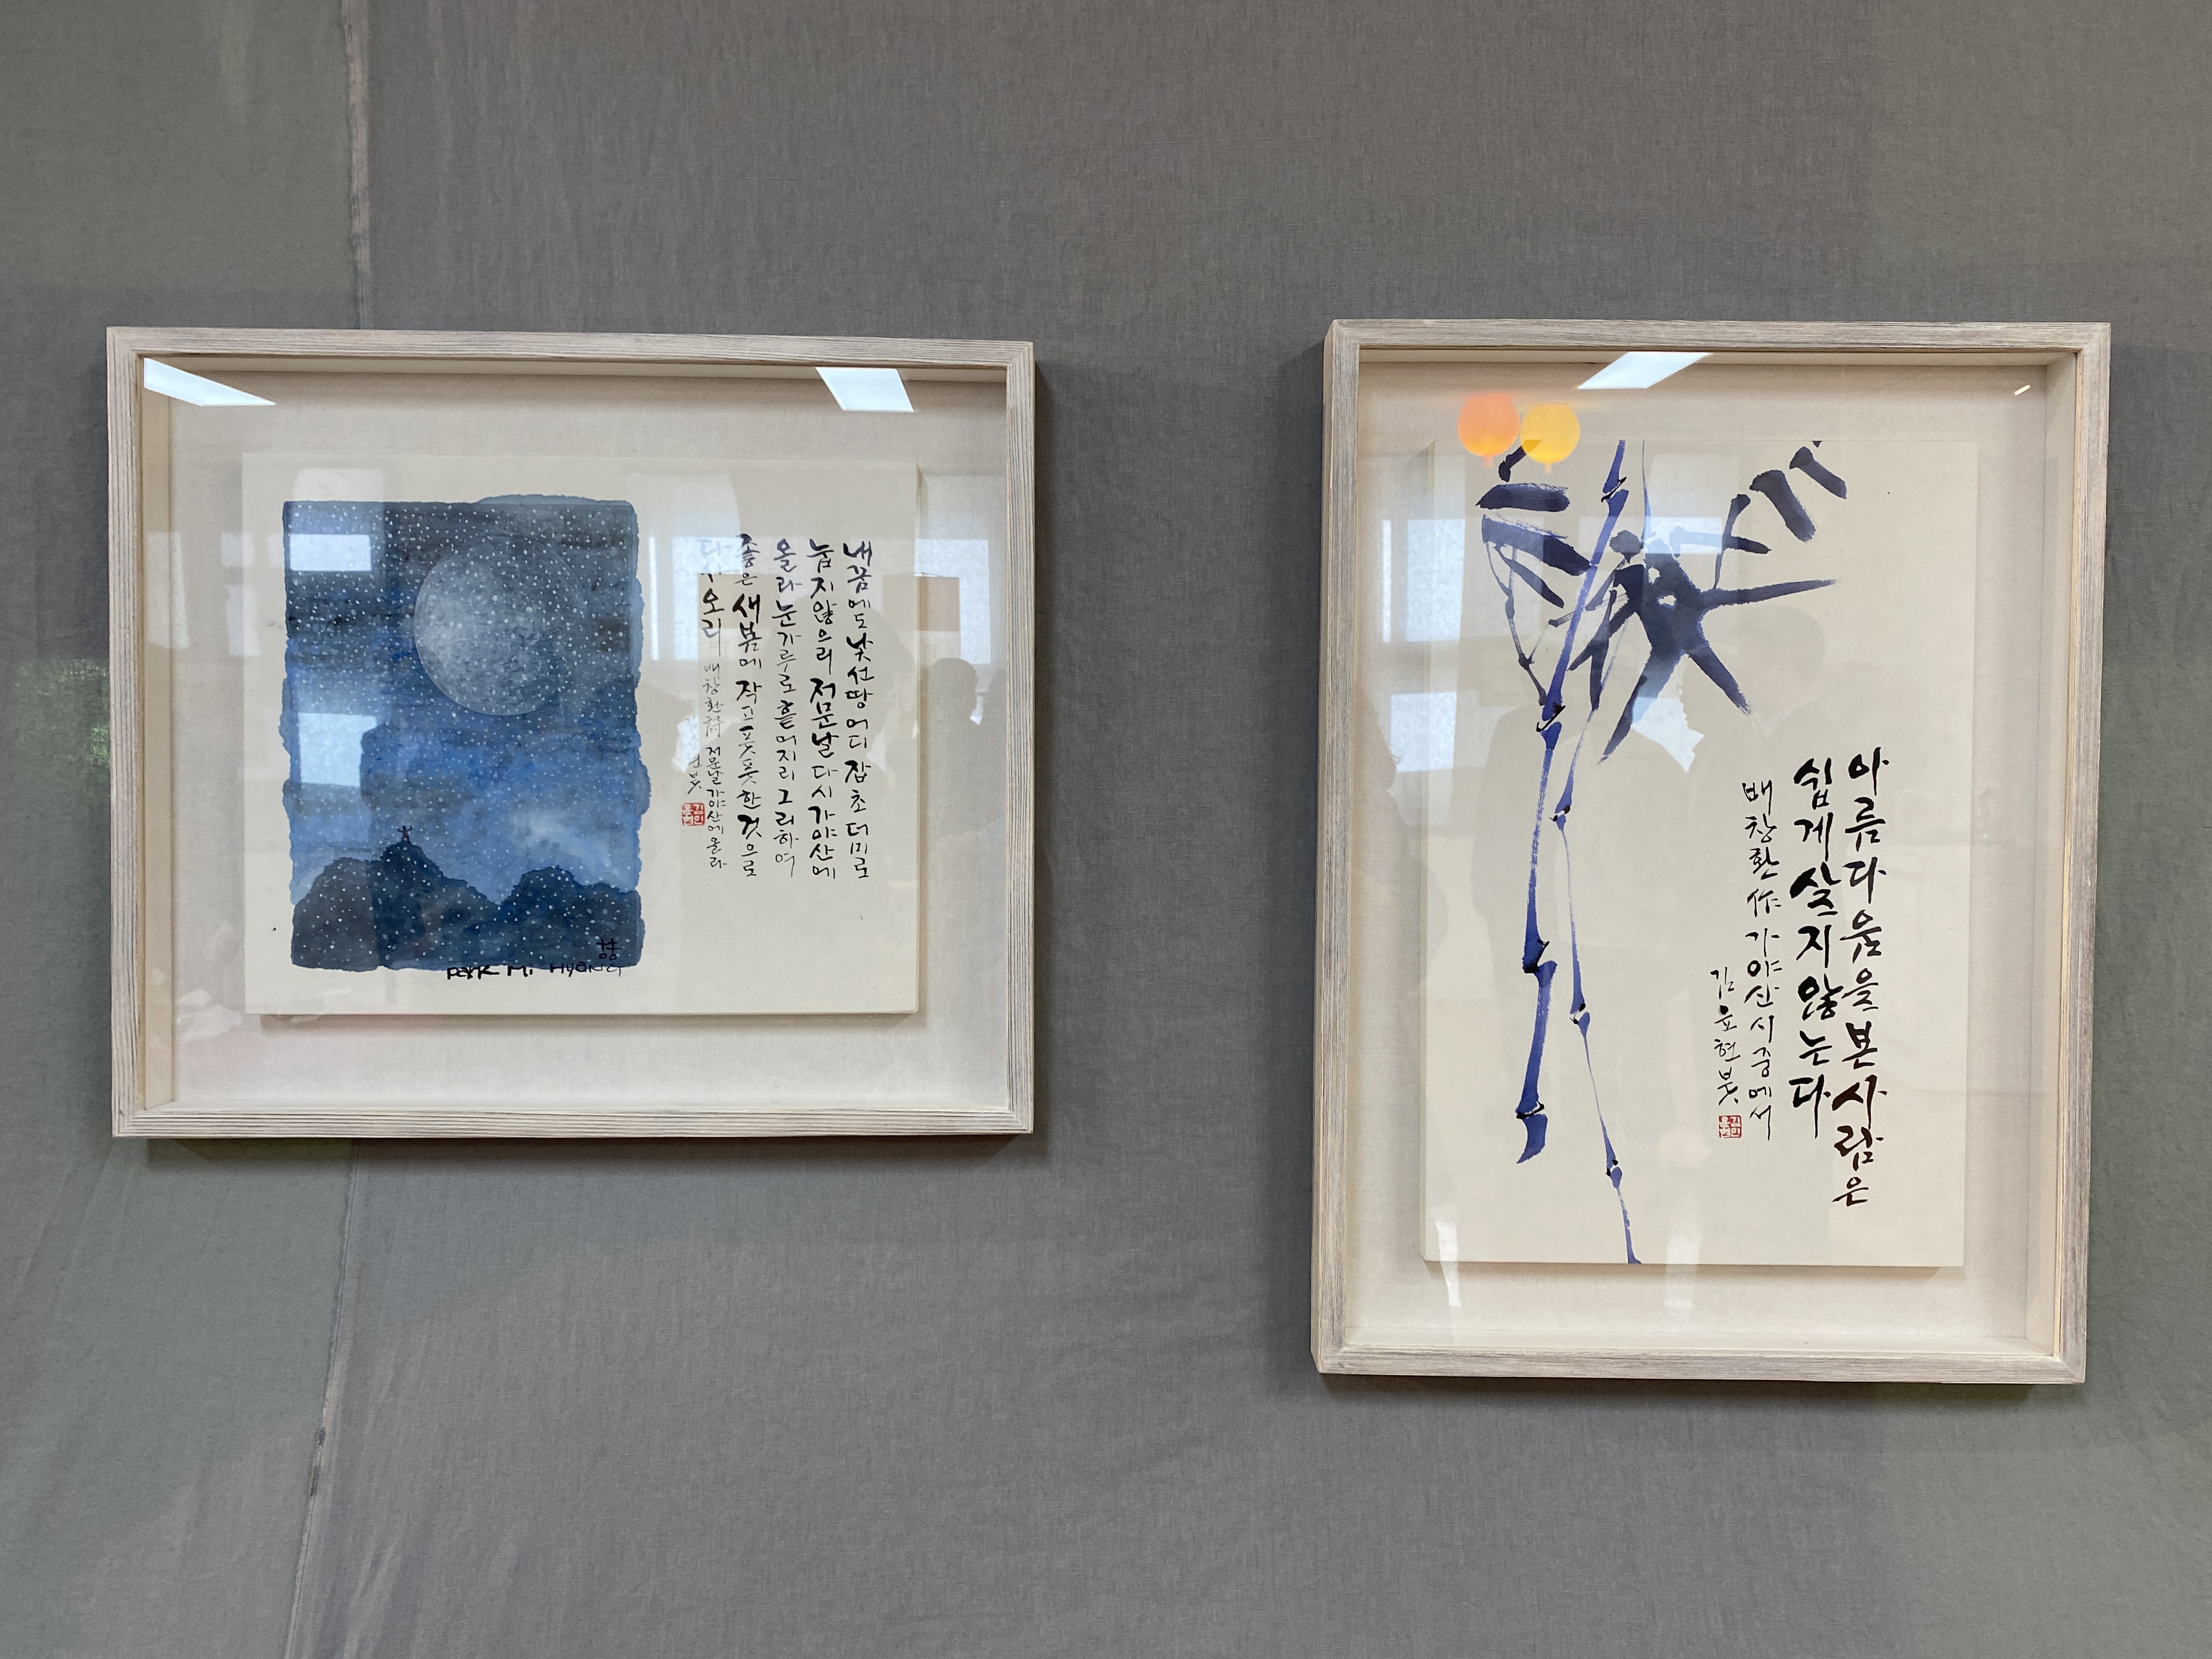 내꿈에도 낯선땅 어디 잡초더미로
눕지않으리 저문날 다시 가야산에
올라 눈가루로 흩어지리 그리하여
좋은 새봄에 작고 풋풋한 것으로
다시 오리
배창환 詩 저문날 가야산에 올라
붓
향
Park Mi Hyang
아름다움을 본 사람은
쉽게 살지 않는다
배창환 作 가야산 시 중에서
김윤현 붓